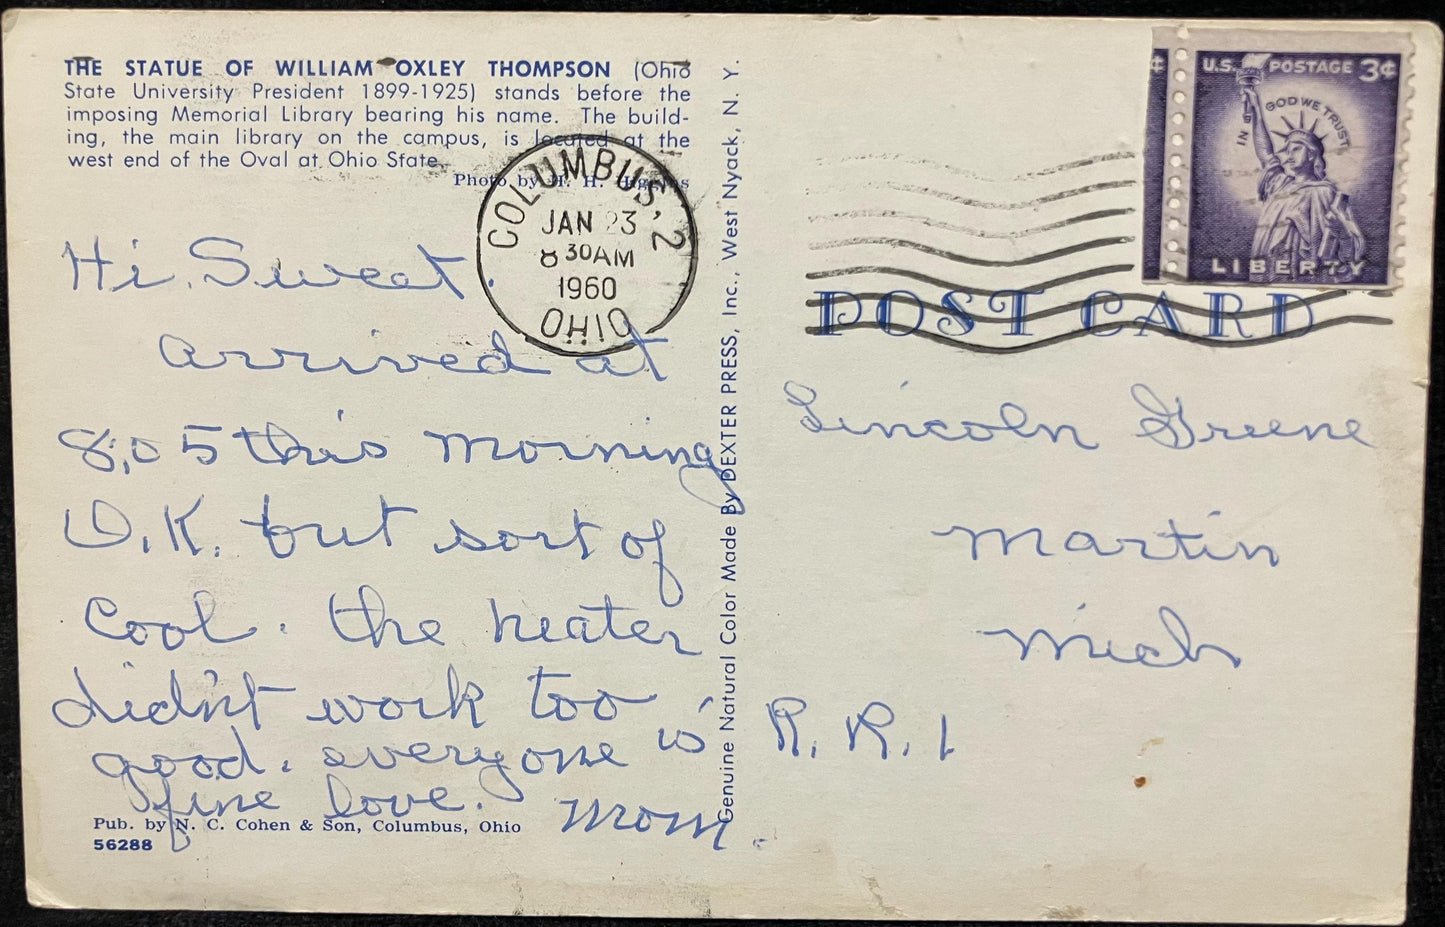 THE STATUE OF WILLIAM OXLEY THOMPSON (Ohio
State University President 1899-1925) stands before the
imposing Memorial Library bearing his name. The build-
ing, the main library on the campus, is located at the
west end of the Oval at Ohio State.
Photo by H. H. Higgins
COLUMBUS, 2
JAN 23
8 30AM
1960
OHIO
Hi, Sweet.
arrived at
8,05 this morning
O.K. but sort of
cool. the heater
didn't work too
good. everyone is
fine love.
Mom.
Pub. by N. C. Cohen & Son, Columbus, Ohio
56288
Genuine Natural Color Made By DEXTER PRESS, Inc., West Nyack, N. Y.
¢
U.S. POSTAGE 3¢
IN GOD WE TRUST
LIBERTY
POST CARD
Lincoln Greene
Martin
Mich
R. R. 1